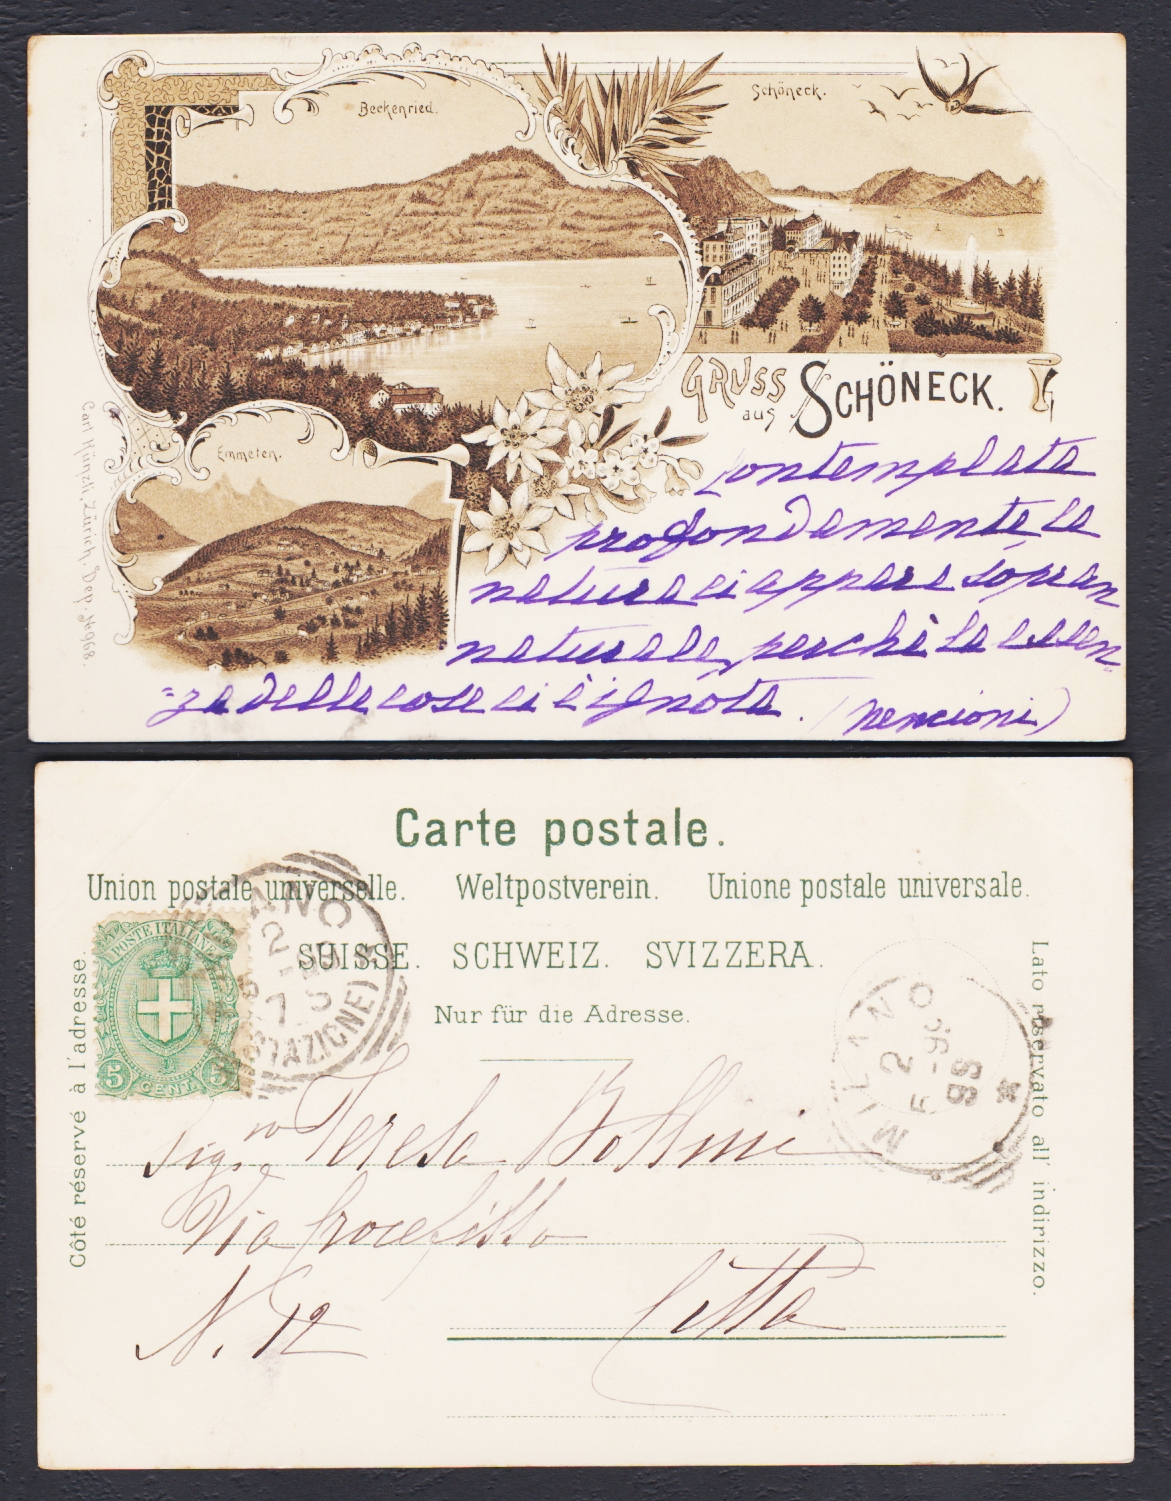 Beckenried.
Schöneck.
GRUSS
aus SCHÖNECK.
Emmeten.
Carl Künzli, Zürich, Dep. 74968.
Contemplata
profondamente la
natura ci appare sopran
naturale, perchè la essen
=za delle cose ci è ignota. (Nencioni)
Carte postale.
Union postale universelle. Weltpostverein. Unione postale universale.
SUISSE. SCHWEIZ. SVIZZERA.
Nur für die Adresse.
Côté réservé à l'adresse.
Lato riservato all' indirizzo.
POSTE ITALIANE
5 CENT. 5
MILANO
(STAZIONE)
MILANO
2
98
Sig.na Teresa Bollini
Via Crocefisso
N. 12 Città